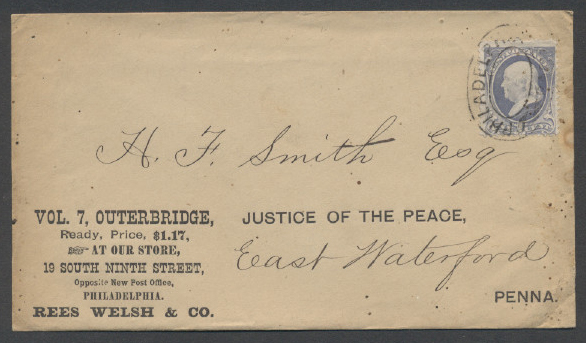 PHILADELPH
H. F. Smith Esq
VOL. 7, OUTERBRIDGE,
Ready, Price, $1.17,
☞ AT OUR STORE,
19 SOUTH NINTH STREET,
Opposite New Post Office,
PHILADELPHIA.
REES WELSH & CO.
JUSTICE OF THE PEACE,
East Waterford
PENNA.